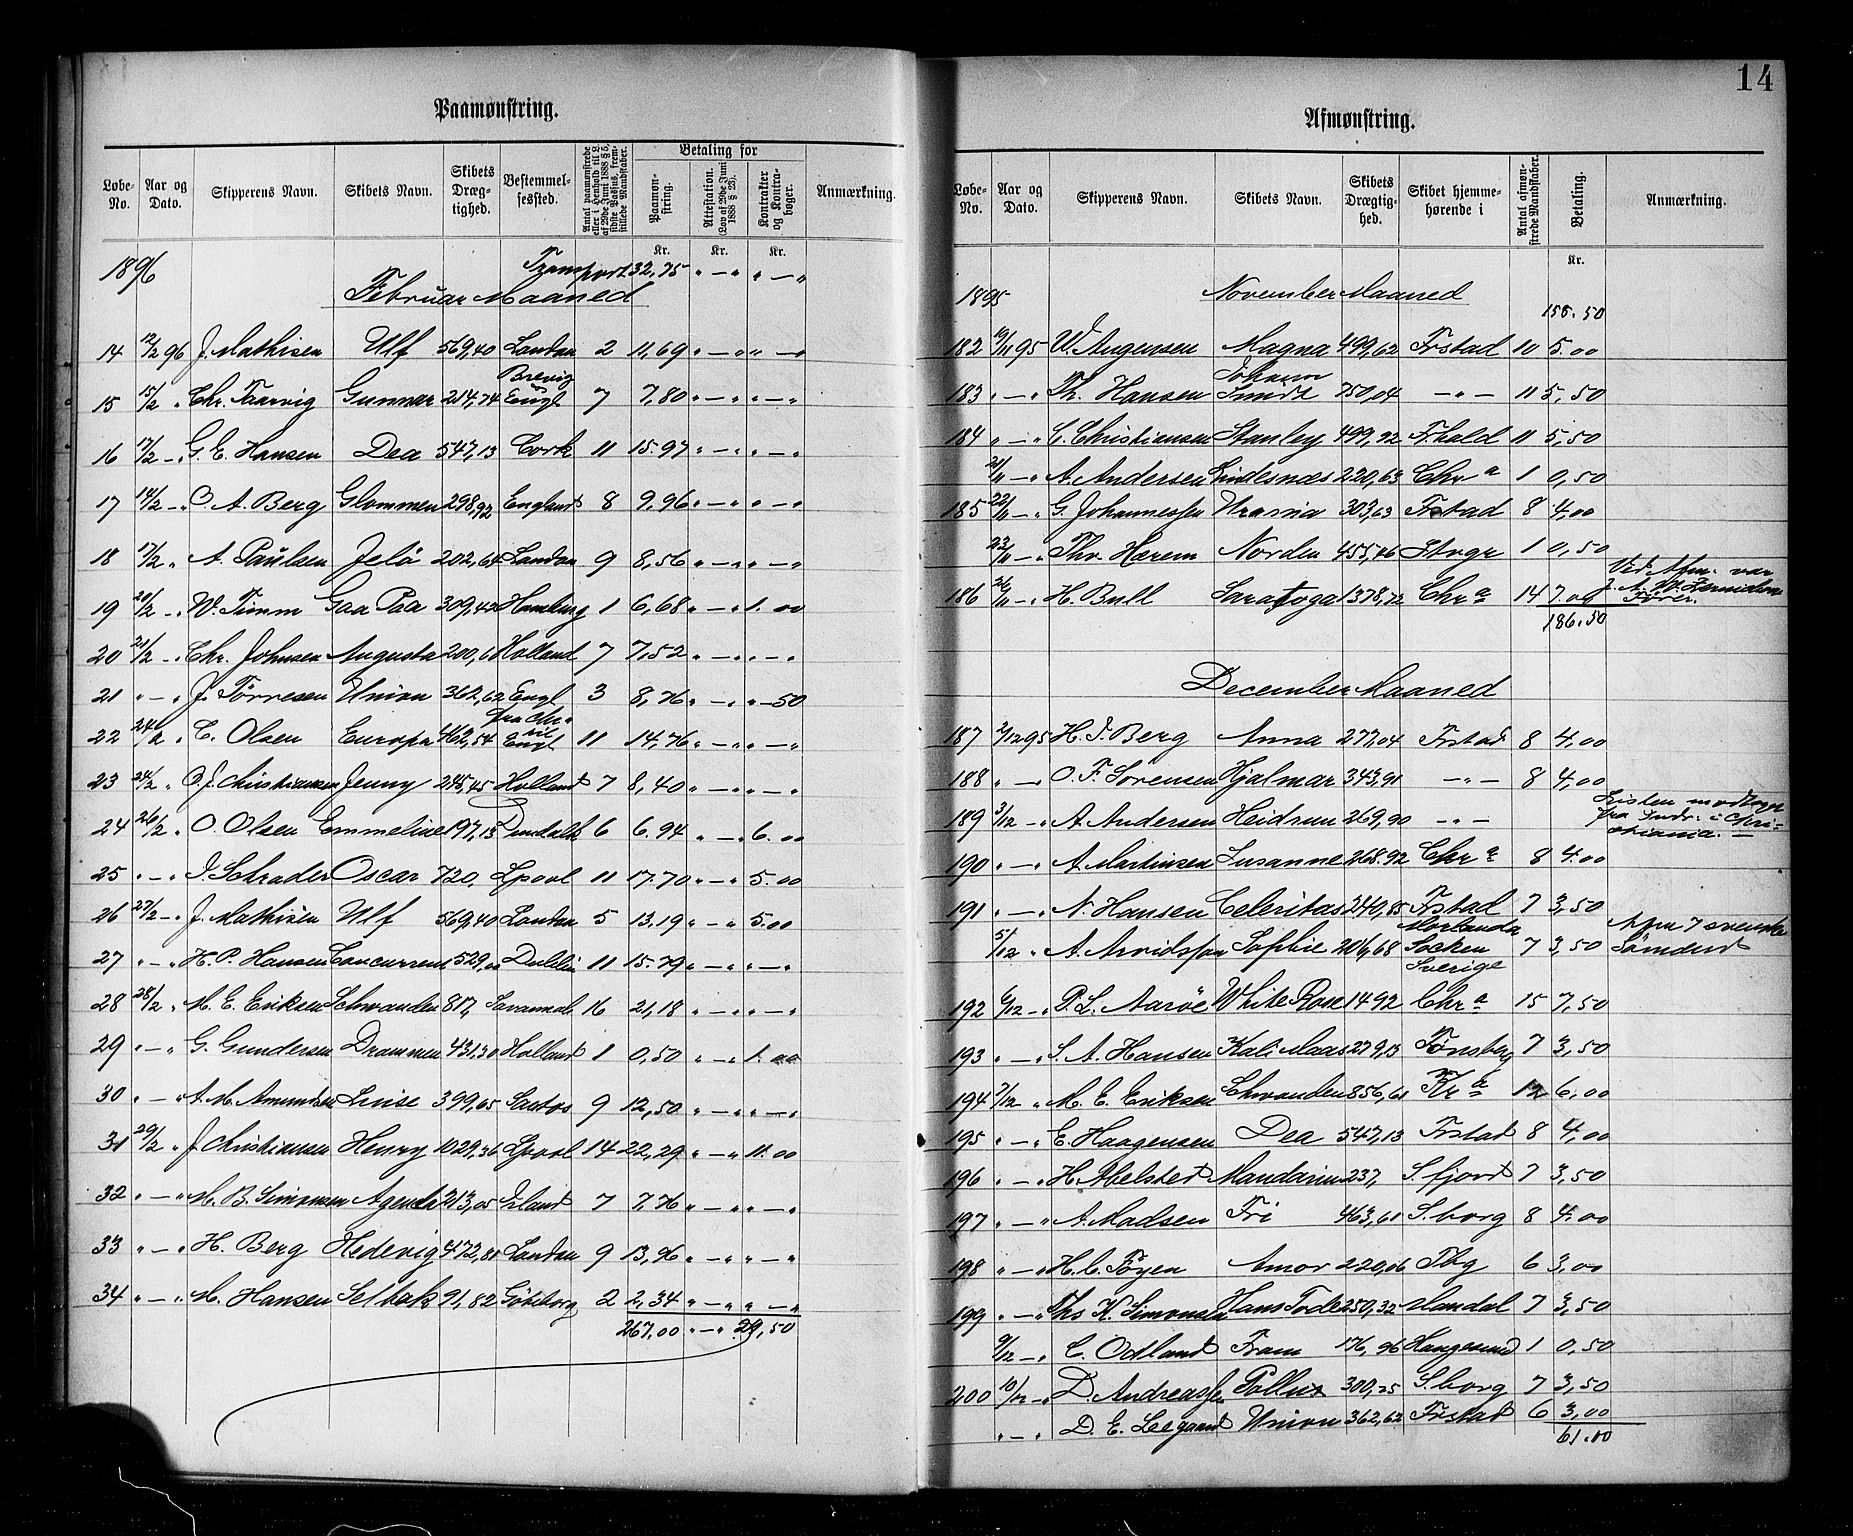 14
Paamønstring.
Løbe-No. Aar og Dato. Skipperens Navn. Skibets Navn. Skibets Drægtighed. Bestemmelsessted. Antal paamønstrede eller i Henhold til L. af 29de Juni 1888 § 5, sidste Passus, fremstillede Mandskaber. Betaling for Paamønstring. Attestation. (Lov af 29de Juni 1888 § 25). Kontrakter og Kontrabøger. Anmærkning.
Kr. Kr. Kr.
1896 Transport 32,75 " — " " — "
Februar Maaned
14 12/2 96 J. Mathisen Ulf 569,40 London 2 11,69 " — " " — "
15 15/2 " Chr. Taarvig Gunnar 214,74 Brevig Engl 7 7,80 " — " " — "
16 17/2 — " G. E. Hansen Dea 547,13 Cork 11 15.97 " — " " — "
17 14/2 — " O. A. Berg Glommen 298,92 England 8 9,96 " — " " — "
18 17/2 " A. Paulsen Jelö 202,64 London 9 8,56 " — " " — "
19 20/2 — " W. Timm Gaa Paa 309,42 Hamburg 1 6,68 " — " 1.00
20 21/2 — " Chr. Johnsen Augusta 200,61 Holland 7 7,52 " — " " — "
21 " — " J. Tørresen Union 362,62 Engl 3 8,76 " — " " — 50
22 24/2 " C. Olsen Europa 462,54 fra Chr. til Engl 11 14,76 " — " " — "
23 24/2 " O. J. Christiansen Jenny 245,45 Holland 7 8,40 " — " " — "
24 26/2 " O. Olsen Emmeline 197,13 Dundalk 6 6.94 " — " 6.00
25 " — " J. Schrader Oscar 720, Lpool 11 17.70 " — " 5.00
26 27/2 — " J. Mathisen Ulf 569,40 London 5 13.19 " — " 5.00
27 " — " H. P. Hansen Concurrent 529,00 Dublin 11 15.79 " — " " — "
28 28/2 " M. E. Eriksen Schwanden 817, Savannah 16 21,18 " — " " — "
29 " — " G. Gundersen Drammen 431,30 Holland 1 0,50 " — " 1.00
30 " — " A. M. Amundsen Luise 399,65 Santos 9 12,50 " — " " — "
31 29/2 " J. Christiansen Henry 1029,36 Lpool 14 22,29 " — " 11.00
32 " — " M. B. Simonsen Agenda 213,05 Irland 7 7,76 " — " " — "
33 " — " H. Berg Hedevig 472,81 London 9 13,96 " — " " — "
34 " — " M. Hansen Selbak 91,82 Göteborg 2 2,34 " — " " — "
267,00 " — " 29,50
Afmønstring.
Løbe-No. Aar og Dato. Skipperens Navn. Skibets Navn. Skibets Drægtighed. Skibet hjemmehørende i Antal afmønstrede Mandskaber. Betaling. Anmærkning.
Kr.
1895 November Maaned 158.50
182 19/11 95 W. Augensen Magna 499,62 Frstad 10 5.00
183 " — " Th. Hansen Johann Smidt 750,04 — " — 11 5,50
184 " — " C. Christiansen Stanley 499,92 Frhald 11 5,50
21/11 — " A. Andersen Lindesnæs 220,63 Chr a 1 0,50
185 22/11 — " G. Johannessen Urania 303,63 Frstad 8 4,00
23/11 — " Thv. Hærem Norden 455,46 Stvgr 1 0,50
186 26/11 — " H. Bull Saratoga 1378,72 Chr a 14 7.00 Ved Afm. var Fører.
186.50
December Maaned
187 2/12 95 H. J. Berg Anna 277,04 Frstad 8 4,00
188 " — " O. F. Sørensen Hjalmar 343,91 — " — 8 4,00
189 3/12 — " A. Andersen Heidrun 269,90 — " — Listen modtaget fra Indr. i Christiania. —
190 " — " A. Martinsen Susanne 268.92 Chr a 8 4.00
191 " — " N. Hansen Celeritas 240,85 Frstad 7 3,50
5/12 " A. Arvidsson Sophie 206,68 Morlanda Socken Sverige 7 3,50 Afm 7 svenske Sömænd
192 6/12 — " P. L. Aarøe White Rose 1492 Chr a 15 7,50
193 " — " S. A. Hansen Kali Maas 279,13 Tønsberg 7 3,50
194 7/12 " M. E. Eriksen Schwanden 856,61 Kr a 12 6,00
195 " — " E. Haagensen Dea 547,13 Frstad 8 4,00
196 " — " H. Abelsted Mandarin 237, S.fjord 7 3,50
197 " — " A. Madsen Fri 463,61 S.borg 8 4.00
198 " — " H. C. Föyen Amor 220,06 Tbg 6 3,00
199 " — " Ths K. Simonsen Hans Tode 250,32 Mandal 7 3,50
9/12 — " C. Odland Fram 176,96 Haugesund 1 0,50
200 10/12 — " D. Andreassen Pollux 300,25 S.borg 7 3,50
" — " D. E. Leegaard Union 362,62 Frstad 6 3,00
61.00